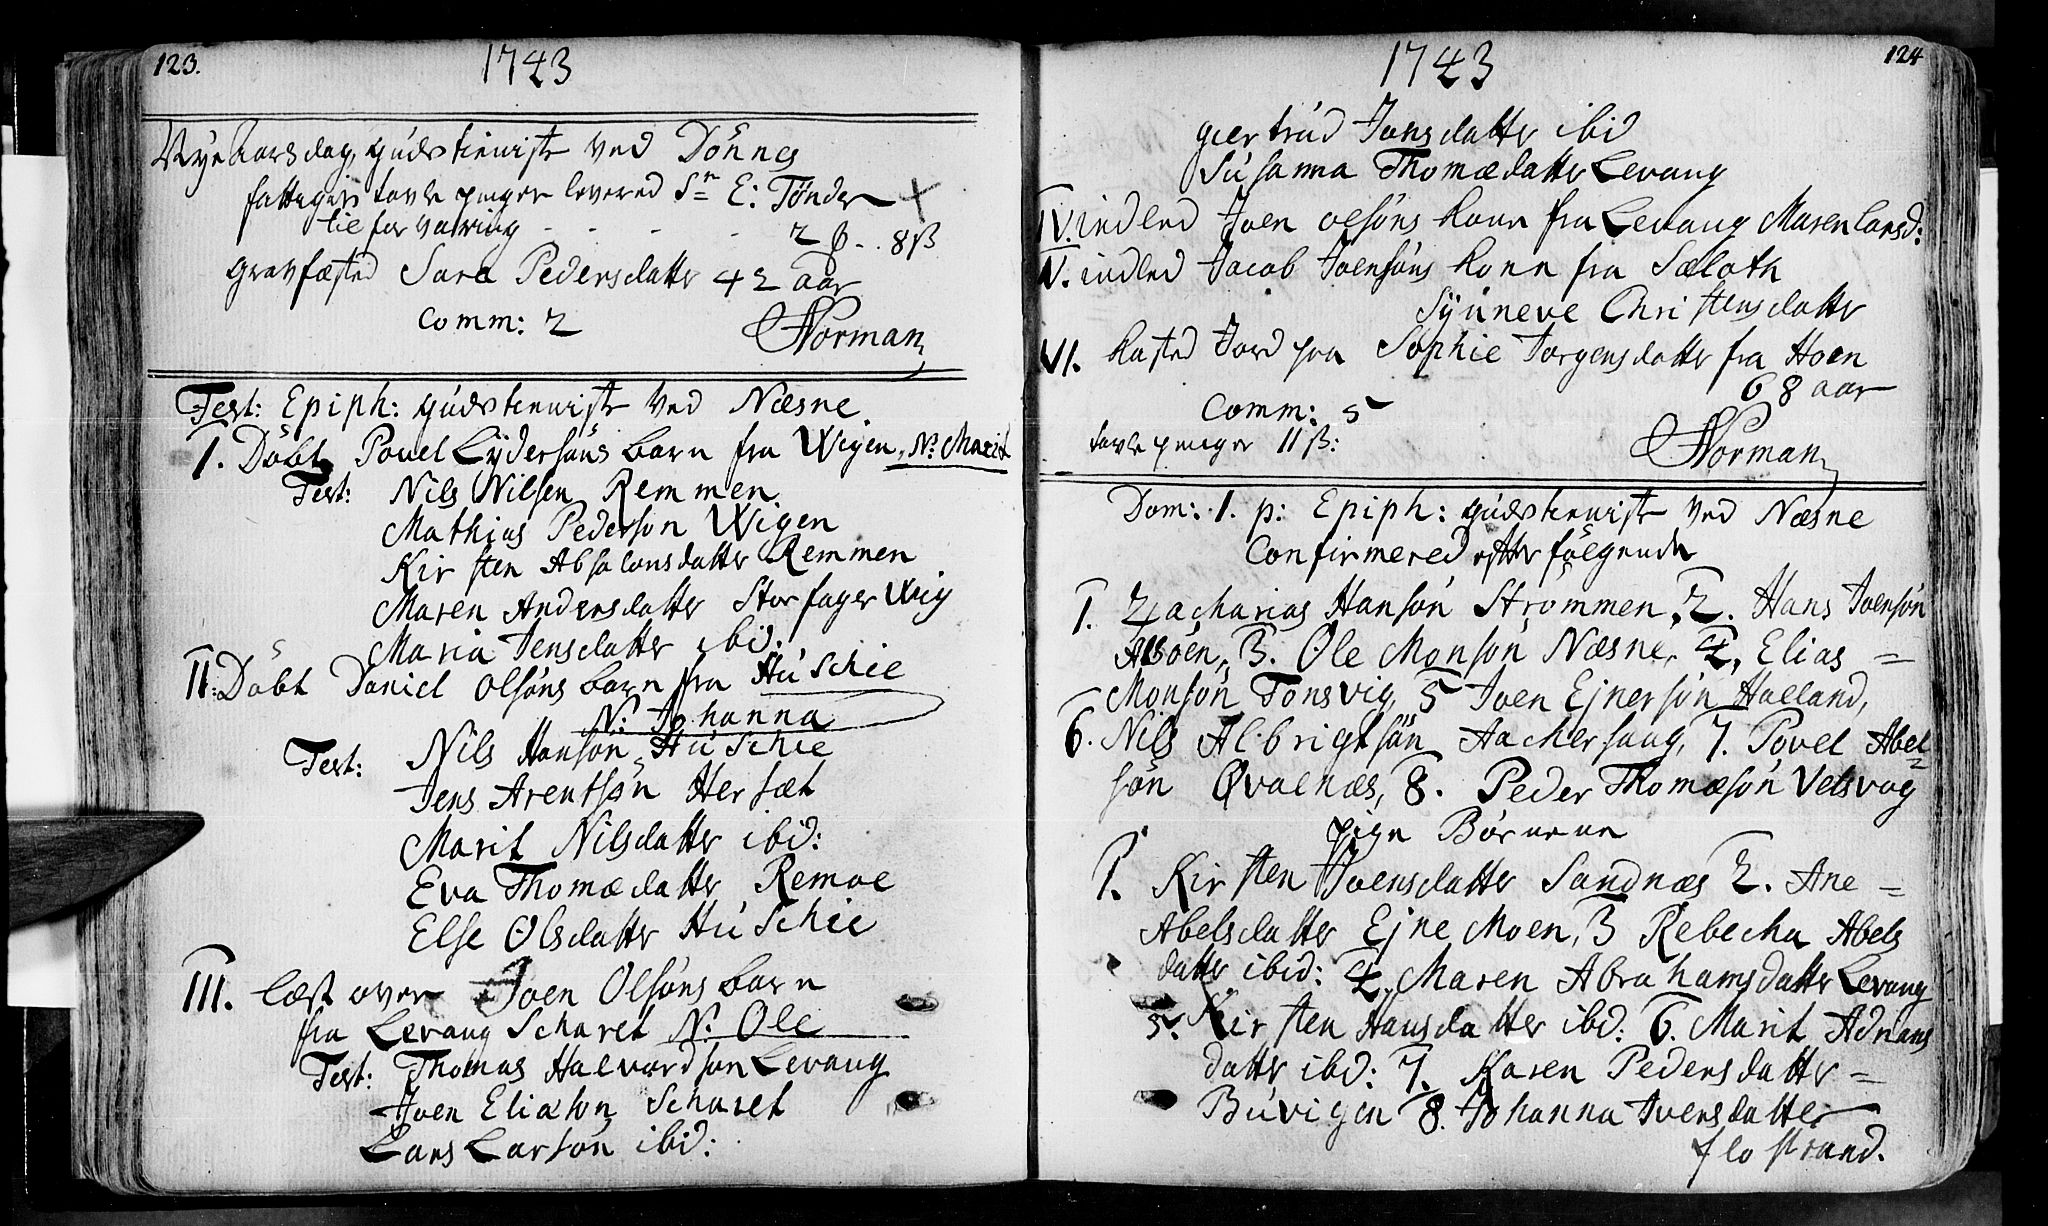 123.
1743
Nye Aarsdag, gudstieniste ved Dönnes
fattiges tavle penger levered Sr E: Tönder +
til forvaring - - - - 2 ß - 8 ß
Gravfæsted Sara Pedersdatter 42 aar
Comm: 2
Norman
Fest: Epiph: gudstieniste ved Næsne
I. Döbt Povel Lydersöns barn fra Wigen, N: Marit
Test: Nils Nilsen Remmen
Mathias Pederson Wigen
Kirsten Absalonsdatter Remmen
Maren Andersdatter Stor fager Wiig
Maria Jensdatter ibid:
II: Döbt Daniel Olsöns barn fra Huschie
N: Johanna
Test: Nils Hansön Huschie
Jens Arentsön Hersæt
Marit Nilsdatter ibid:
Eva Thomædatter Remoe
Else Olsdatter Huschie
III. læst over Joen Olsöns barn
fra Levang Scharet N: Ole
Test: Thomas Halvordson Levang
Joen Eliason Scharet
Lars Larsön ibid:
1743
124
giertrud Jonsdatter ibid
Susanna Thomædatter Levang
IV. indled Joen olsöns kone fra Levang Maren Larsd:
V. indled Jacob Joensöns kone fra Sæloth
Synneve Christensdatter
VI. kasted Jord paa Sophie Jorgensdatter fra Hoen
68 aar
Comm: 5
tavle penger 11 ß:
Norman
Dom: 1. p: Epiph: gudstieniste ved Næsne
Confirmered efterfölgende
1. Zacharias Hansön Strömmen, 2. Hans Joensön
Alsöen, 3. Ole Monsön Næsne, 4, Elias =
Monsön Tonsvig, 5 Joen Ejnersön Halland,
6. Nils Albrigtsön Aachersaag, 7. Povel Abel=
sön Qvalnæs, 8. Peder Thomæsön Velsvog
pige Börnene
1. Kirsten Joensdatter Sandnæs 2. Ane =
Abelsdatter Ejnemoen, 3 Rebecha Abels
datter ibid: 4, Maren Abrahamsdatter Levang
5. Kirsten Hansdatter ibid: 6. Marit Adrians
datter ibid: 7. Karen Pedersdatter =
Buvigen 8. Johanna Iversdatter
flostrand.